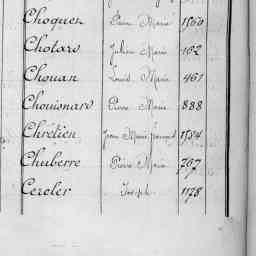 Choquer Pierre Marie 1560
Chotard Julien Marie 162
Chouan Louis Marie 461
Chouionard Pierre Marie 888
Chrétien Jean Marie François 1554
Chuberre Pierre Marie 767
Cercler Joseph 1128